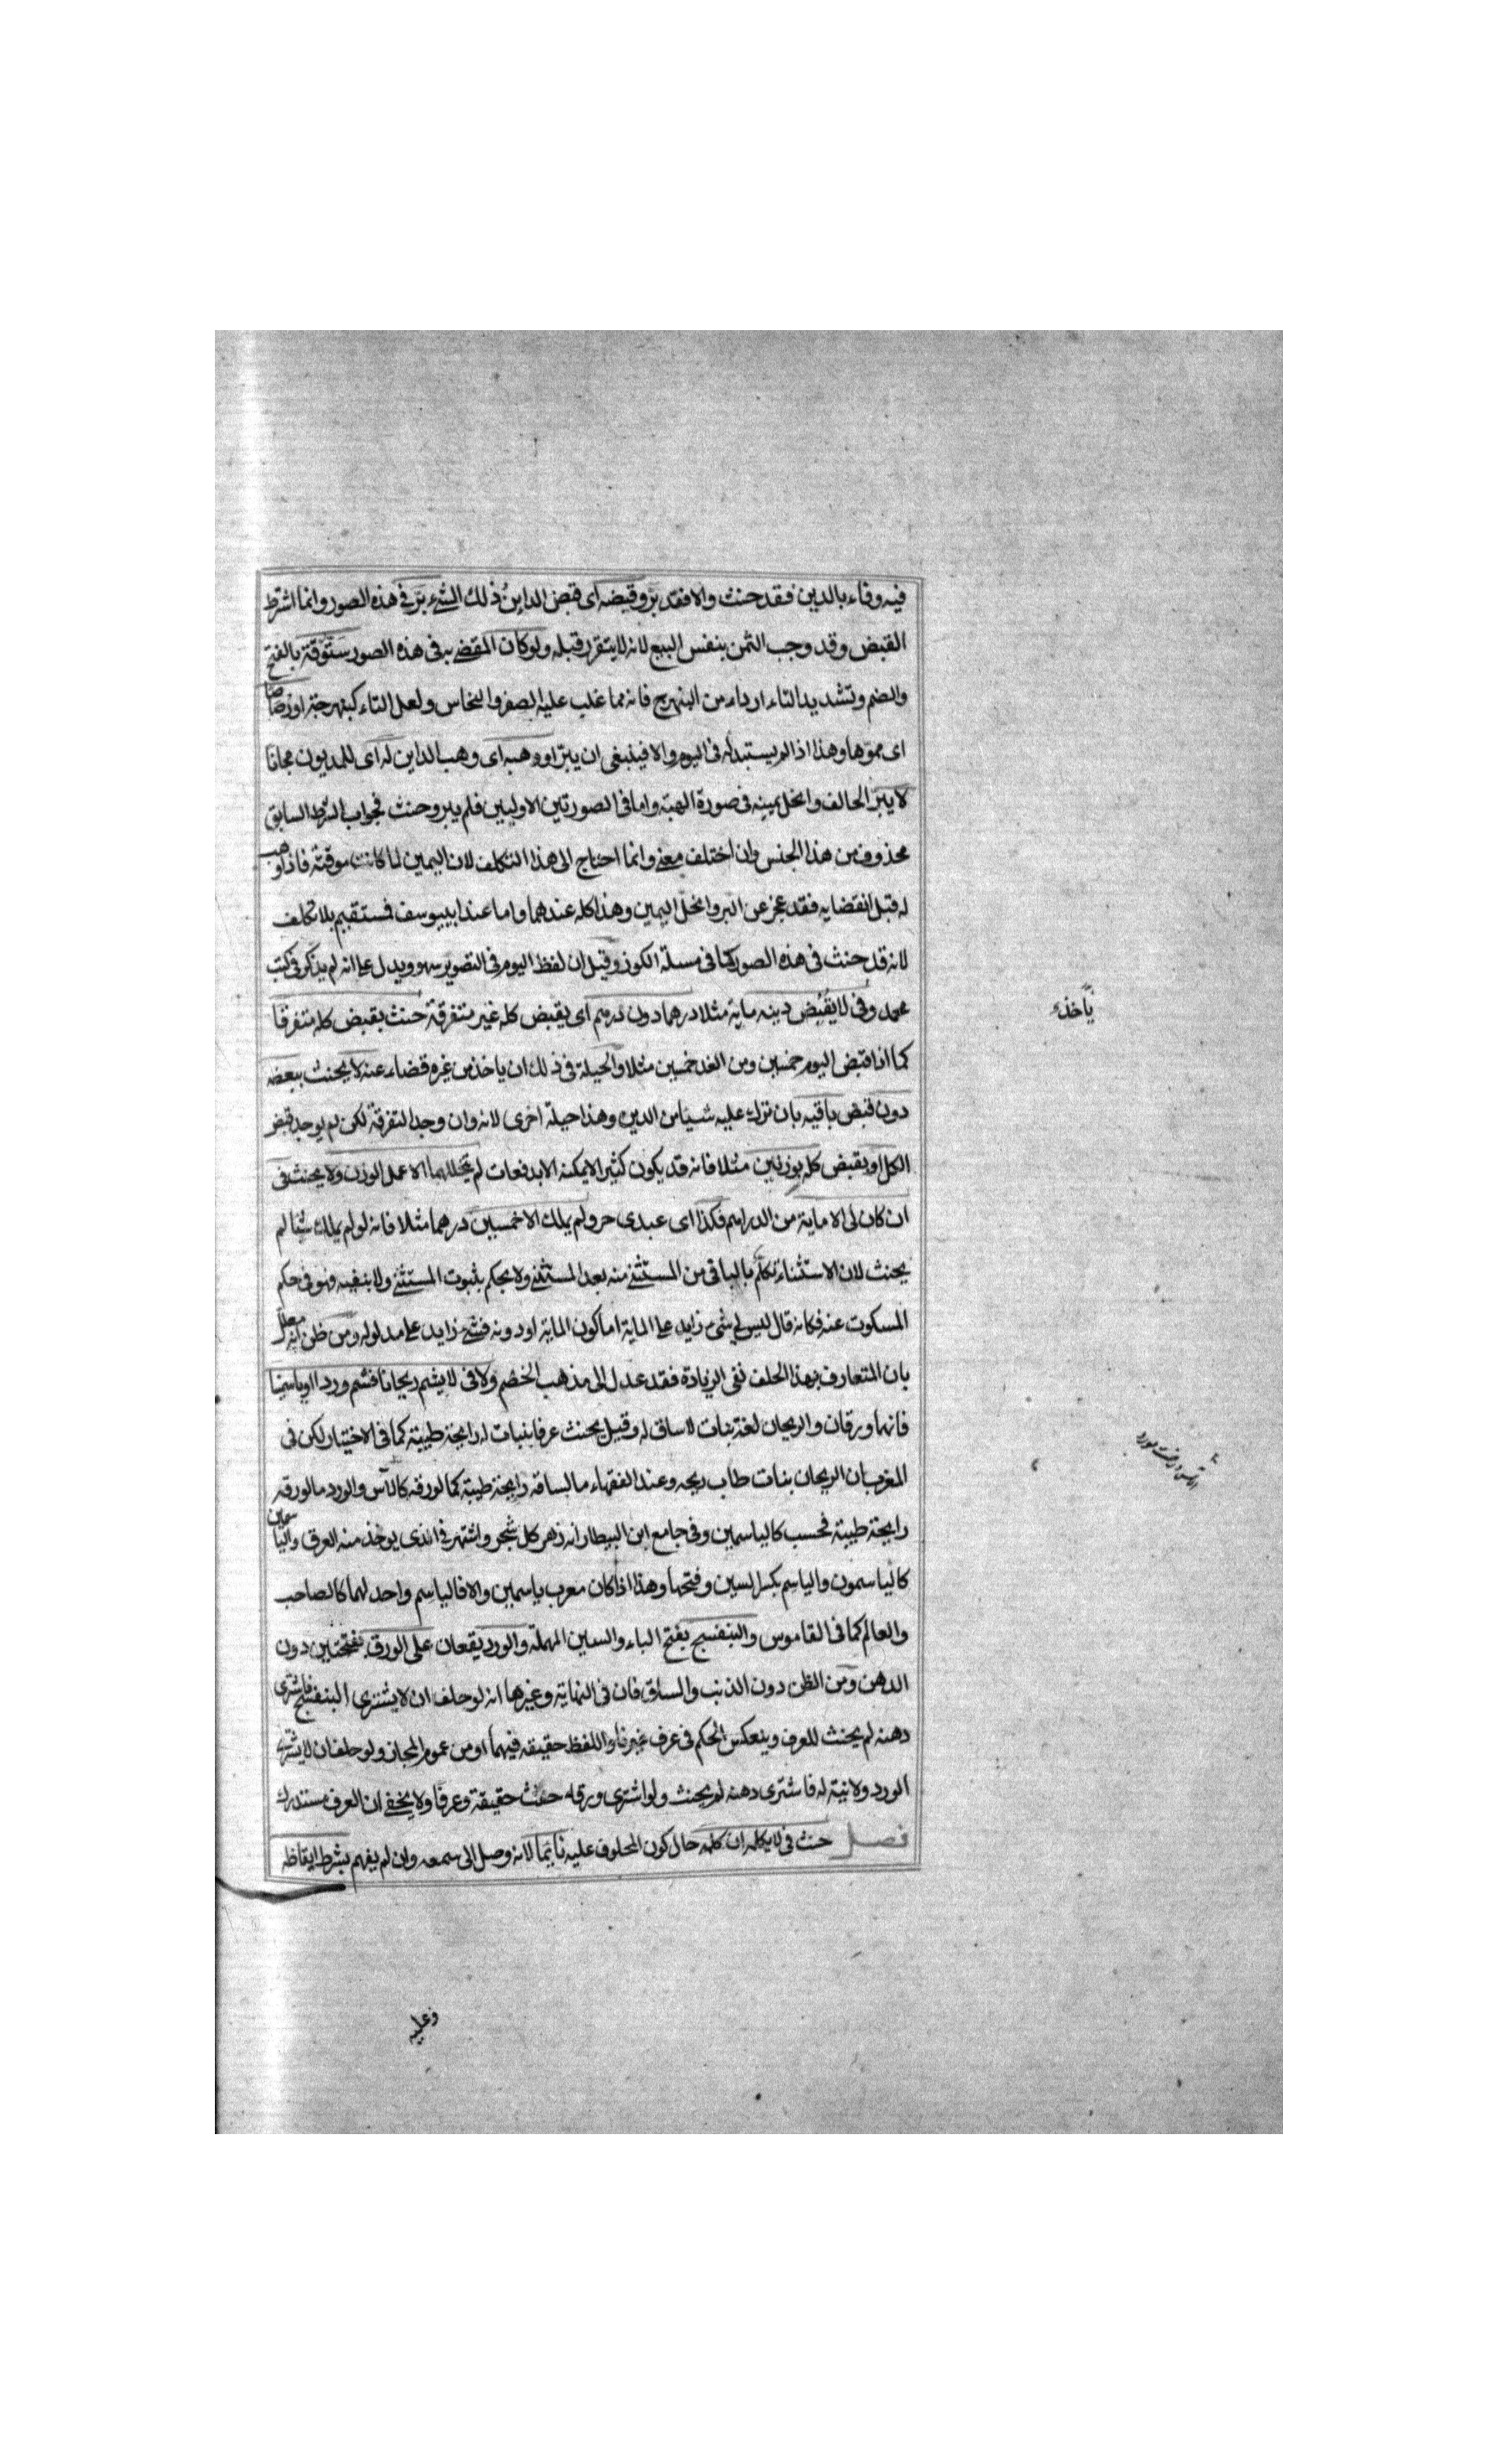 فيه وفاء بالدين فقد حنث والا فقد برّ وقبضه اى قبض الداين ذلك الشىء برّ فى هذه الصور وانما اشترط
القبض وقد وجب الثمن بنفس البيع لانه لا يتقرر قبله ولو كان المقضى به فى هذه الصور ستوقة بالفتح
والضم وتشديد التاء ارداء من النبهرج فانه مما غلب عليه الصفر والنحاس ولعل التاء كنبهرجة او رصاصا
اى مموها وهذا اذا لم يستبدله فى اليوم والا فينبغى ان يبرّ او وهبه اى وهب الداين له اى للمديون مجانا
لا يبرّ الحالف وانحل يمينه فى صورة الهبة واما فى الصورتين الاوليين فلم يبر وحنث فجواب الشرط السابق
محذوف من هذا الجنس وان اختلف معنى وانما احتاج الى هذا التكلف لان اليمين لما كانت موقتة فاذا وهب
له قبل انقضايه فقد عجز عن البر وانحل اليمين وهذا كله عندهما واما عند ابى يوسف فستقيم بلا تكلف
لانه قد حنث فى هذه الصور كما فى مسلة الكوز وقيل ان لفظ اليوم فى التصوير سهو ويدل على انه لم يذكر فى كتب
محمد وفى لا يقبض دينه ماية مثلا درهما دون درهم اى يقبض كله غير متفرقة حنث بقبض كله متفرقا
كما اذا قبض اليوم خمسين ومن الغد خمسين مثلا والحيلة فى ذلك ان ياخذ من غيره قضاء عنه لا يحنث ببعضه
دون قبض باقيه بان ترك عليه شيئا من الدين وهذا حيلة اخرى لانه وان وجد التفرقة لكن لم يوجد قبض
الكل او بقبض كله بوزنين مثلا فانه قد يكون كثيرا لا يمكنه الا بدفعات لم يتخللهما الا عمل الوزن ولا يحنث فى
ان كان لى الا ماية من الدراهم فكذا اى عبدى حر ولم يملك الا خمسين درهما مثلا فانه لو لم يملك شيئا لم
يحنث لان الاستثناء تكلم بالباقى من المستثنى منه بعد المستثنى ولا يحكم بثبوت المستثنى ولا بنفيه فهو فى حكم
المسكوت عنه فكانه قال ليس لى شىء زايد على الماية اما كون الماية او دونه فشىء زايد على مدلوله ومن ظن انه معلل
بان المتعارف بهذا الحلف نفى الزيادة فقد عدل الى مذهب الخصم ولا فى لا يشم ريحانا فشم وردا او ياسمينا
فانهما ورقان والريحان لغة نبات لا ساق له وقيل يحنث عرفا بنبات له رايحة طيبة كما فى الاختيار لكن فى
المغرب ان الريحان نبات طاب ريحه وعند الفقهاء ما لساقه رايحة طيبة كما لورقه كالآس والورد ما لورقه
رايحة طيبة فحسب كالياسمين وفى جامع ابن البيطار انه زهر كل شجر واشتهر فى الذى يوخذ منه العرق والياسمين
كالياسمون والياسم بكسر السين وفتحها وهذا اذا كان معرب ياسمين والا فالياسم واحد لهما كالصاحب
والعالم كما فى القاموس والبنفسج بفتح الباء والسين المهملة والورد يقعان على الورق بفتحتين دون
الدهن ومن الظن دون الذنب والساق فان فى النهاية وغيرها انه لو حلف ان لا يشترى البنفسج فاشترى
دهنه لم يحنث للعرف وينعكس الحكم فى عرف غيرنا واللفظ حقيقة فيهما او من عموم المجاز ولو حلف ان لا يشترى
الورد ولا نية له فاشترى دهنه لم يحنث ولو اشترى ورقه حنث حقيقة وعرفا ولا يخفى ان العرف مستدرك
فصل حنث فى لا يكلمه ان كلمه حال كون المحلوف عليه نايما لانه وصل الى سمعه وان لم يفهم بشرط ايقاظه
ياخذه
وعليه